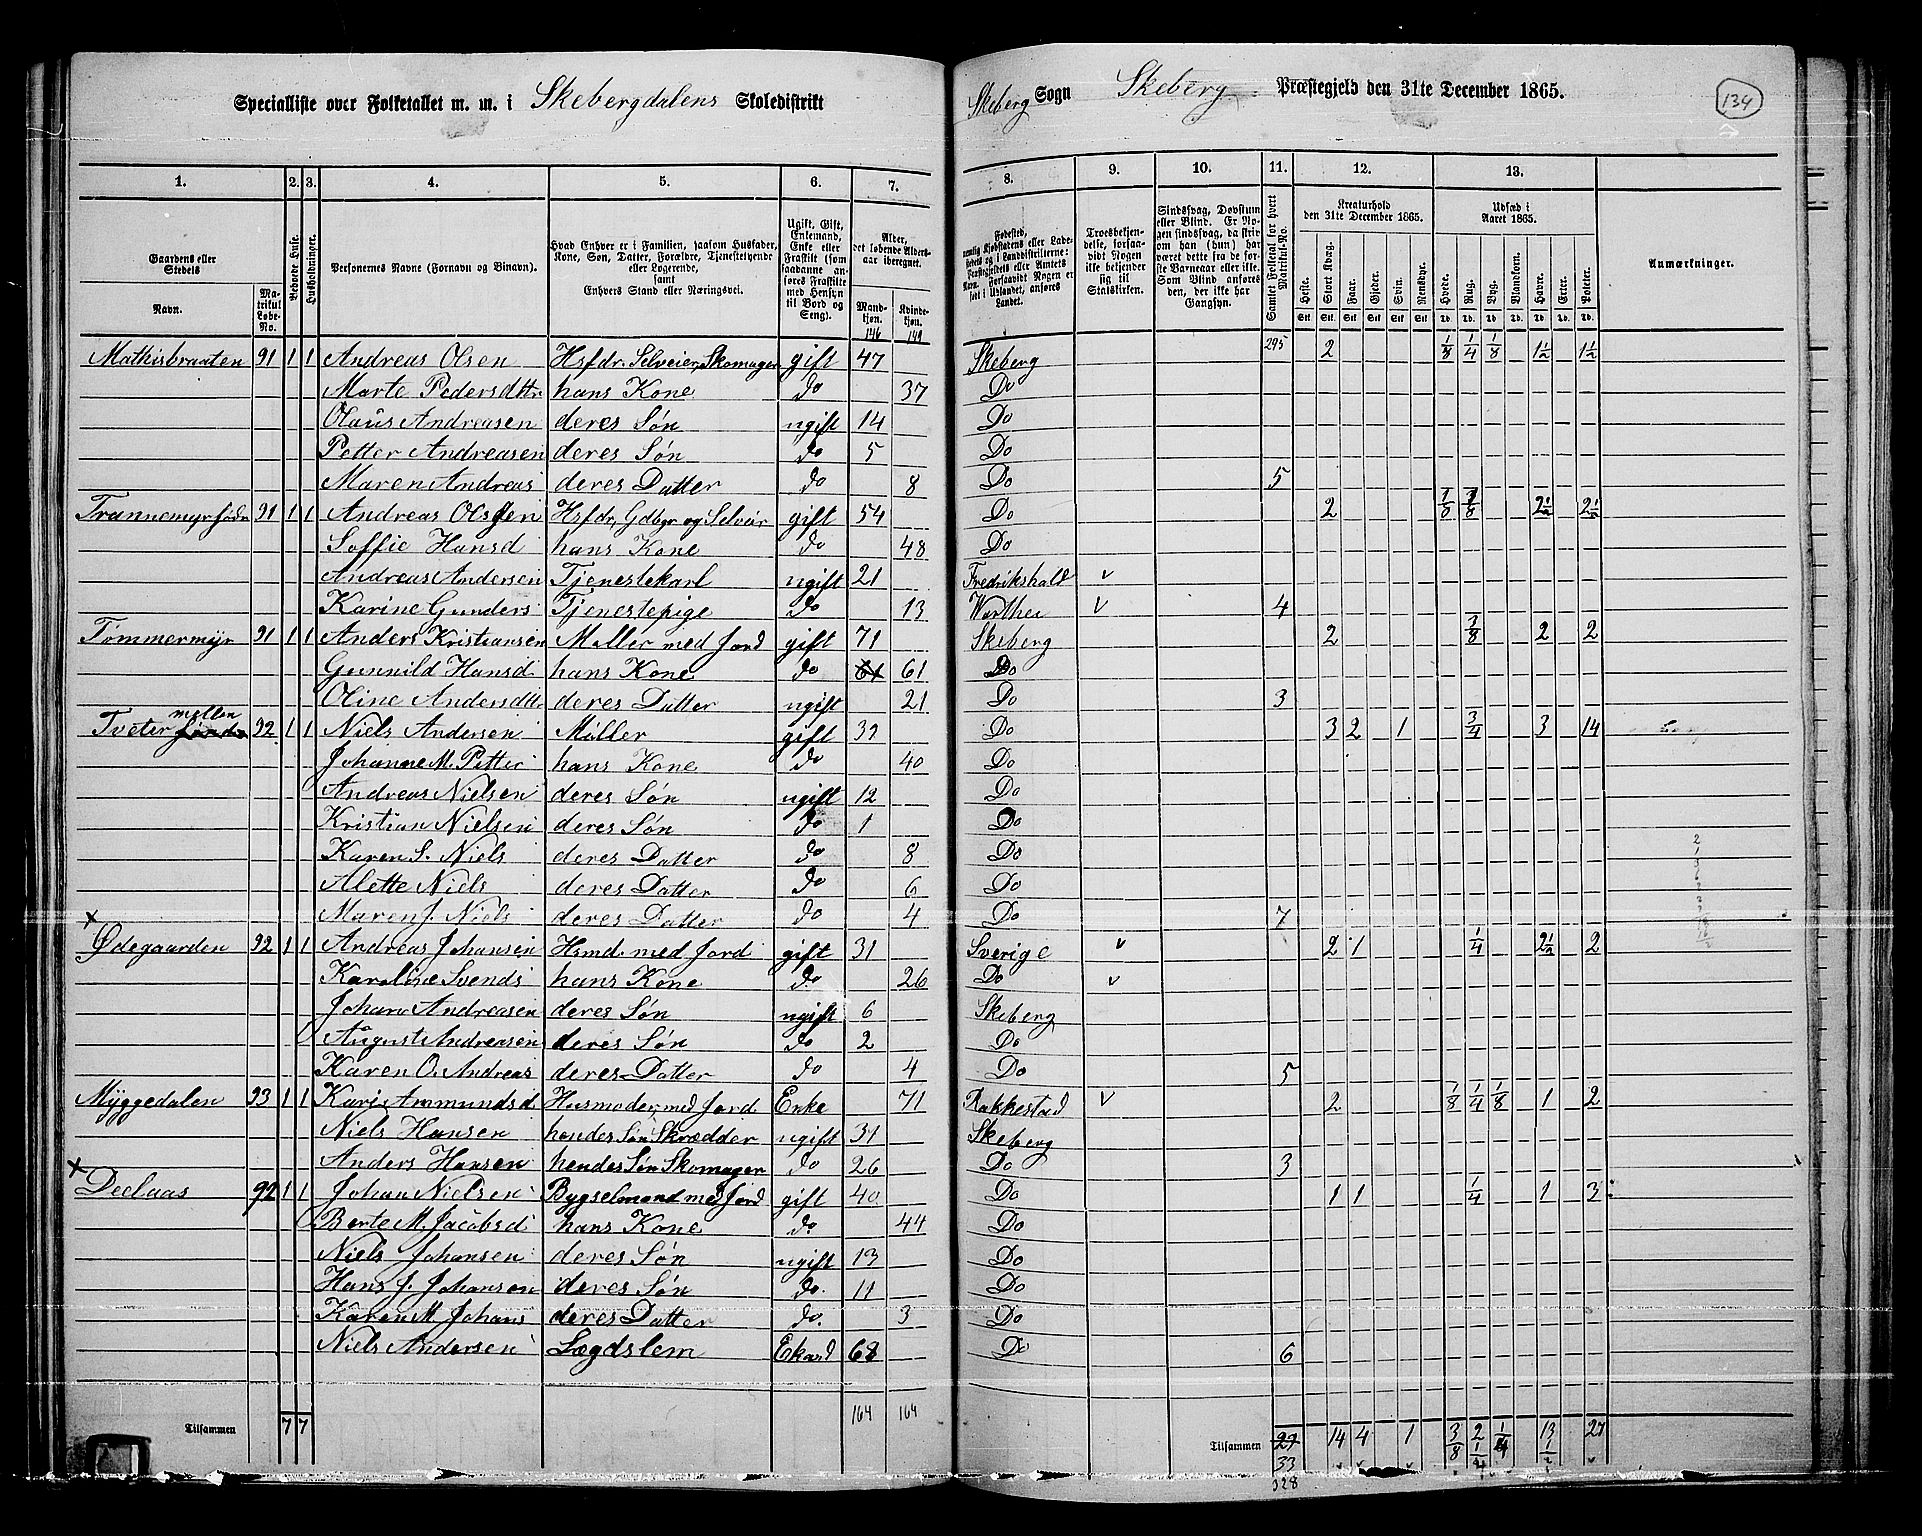 Specialliste over Folketallet m. m. i Skebergdalens Skoledistrikt Skeberg Sogn Skeberg Præstegjeld den 31te December 1865. 134
1. 2. 3. 4. 5. 6. 7. 8. 9. 10. 11. 12. 13.
Gaardens eller Stedets
Navn.
Matrikul Løbe-No.
Beboede Huse.
Husholdninger.
Personernes Navne (Fornavn og Binavn).
Hvad Enhver er i Familien, saasom Husfader, Kone, Søn, Datter, Forældre, Tjenestetyende eller Logerende, samt Enhvers Stand eller Næringsvei.
Ugift, Gift, Enkemand, Enke eller Fraskilt (som saadanne anføres Fraskilte med Hensyn til Bord og Seng).
Alder, det løbende Alders-aar iberegnet.
Mandkjøn. 146
Kvindekjøn. 149
Fødested,
Troesbekjendelse, forsaavidt Nogen ikke bekjender sig til Statskirken.
Sindssvag, Døvstum eller Blind. Er Nogen sindssvag, da skriv om han (hun) har været dette fra de første Barneaar eller ikke. Som Blind anføres den, der ikke har Gangsyn.
Samlet Folketal for hvert Matrikul-No.
Kreaturhold den 31te December 1865.
Heste. Stort Kvæg. Faar. Gjeder. Svin. Rensdyr.
Udsæd i Aaret 1865.
Hvede. Rug. Byg. Blandkorn. Havre. Erter. Poteter.
Anmærkninger.
Mathisbraaten 91 1 1 Andreas Olsen Hsfdr. Selveier, Skomager gift 47 Skeberg 295 2 1/8 1/4 1/8 1 1/2 1 1/2
Marte Pedersdttr hans Kone do 37 Do
Olaus Andreasen deres Søn ugift 14 Do
Petter Andreasen deres Søn do 5 Do
Maren Andreas deres Datter do 8 Do 5
91 1 1 Andreas Olssen Hsfdr, Gdbgr og Selveir gift 54 Do 2 1/8 3/8 2 1/2 2 1/2
Soffie Hansd hans Kone do 48 Do
Andreas Andersen Tjenestekarl ugift 21 Fredrikshald v
Karine Gunders Tjenestepige do 13 v 4
Tømmermyr 91 1 1 Anders Kristiansen Møller med Jord gift 71 Skeberg 2 3/8 2 2
Gunnild Hansd hans Kone do 61 61 Do
Oline Andersdttr deres Datter ugift 21 Do 3
Tveter mellen søndre 92 1 1 Niels Andersen Møller gift 39 Do 3 2 1 3/4 3 14
Johanne M. Petter hans Kone do 40 Do
Andreas Nielsen deres Søn ugift 12 Do
Kristian Nielsen deres Søn do 1 Do
Karen S. Niels deres Datter do 8 Do
Alette Niels deres Datter do 6 Do
Maren J. Niels deres Datter do 4 Do 7
x
Ødegaarden 92 1 1 Andreas Johansen Hsmd. med Jord gift 31 Sverige v 2 1 1/4 2 1/2 2
Karoline Svends hans Kone do 26 Do v
Johan Andreasen deres Søn ugift 6 Skeberg
August Andreasen deres Søn do 2 Do
Karen O. Andreas deres Datter do 4 Do 5
Myggedalen 93 1 1 Kari Ammundsd Husmoder, med Jord Enke 71 Rakkestad v 2 1/8 1/4 1/8 1 2
Niels Hansen hendes Søn Skrædder ugift 31 Skeberg
Anders Hansen hendes Søn Skomager do 26 Do 3
x
Deelaas 92 1 1 Johan Nielsen Bygselmand med Jord gift 40 Do 1 1 1/4 1 3
Berte M. Jacobsd hans Kone do 44 Do
Niels Johansen deres Søn ugift 13 Do
Hans J. Johansen deres Søn do. 11 Do
Karen M Johans deres Datter do. 3 Do
Niels Andersen Lægdslem Ekmd 68 Do 6
164 164
Tilsammen 7 7 Tilsammen 27 14 4 1 3/8 2 1/4 1/4 13 1/2 27
33
328